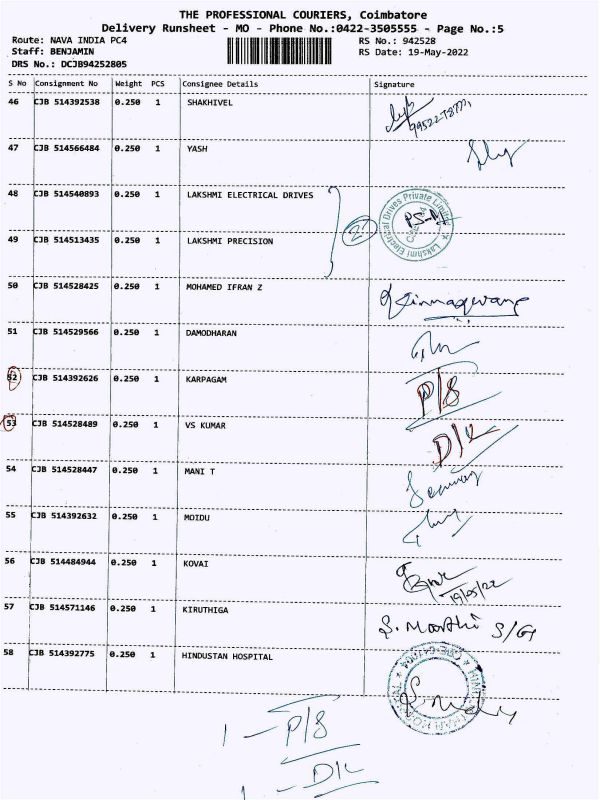 THE PROFESSIONAL COURIERS, Coimbatore
Delivery Runsheet - MO - Phone No.:0422-3505555 - Page No.:5
Route: NAVA INDIA PC4 RS No.: 942528
Staff: BENJAMIN RS Date: 19-May-2022
DRS No.: DCJB94252805
S No Consignment No Weight PCS Consignee Details Signature
46 CJB 514392538 0.250 1 SHAKHIVEL
47 CJB 514566484 0.250 1 YASH
48 CJB 514540893 0.250 1 LAKSHMI ELECTRICAL DRIVES
Lakshmi Electrical Drives Private Limited
2
49 CJB 514513435 0.250 1 LAKSHMI PRECISION
50 CJB 514528425 0.250 1 MOHAMED IFRAN Z
51 CJB 514529566 0.250 1 DAMODHARAN
52 CJB 514392626 0.250 1 KARPAGAM P/S
53 CJB 514528489 0.250 1 VS KUMAR D/L
54 CJB 514528447 0.250 1 MANI T
55 CJB 514392632 0.250 1 MOIDU
56 CJB 514484944 0.250 1 KOVAI
19/05/22
57 CJB 514571146 0.250 1 KIRUTHIGA S. Moorthi S/G
58 CJB 514392775 0.250 1 HINDUSTAN HOSPITAL
1 - P/S
1 - D/L